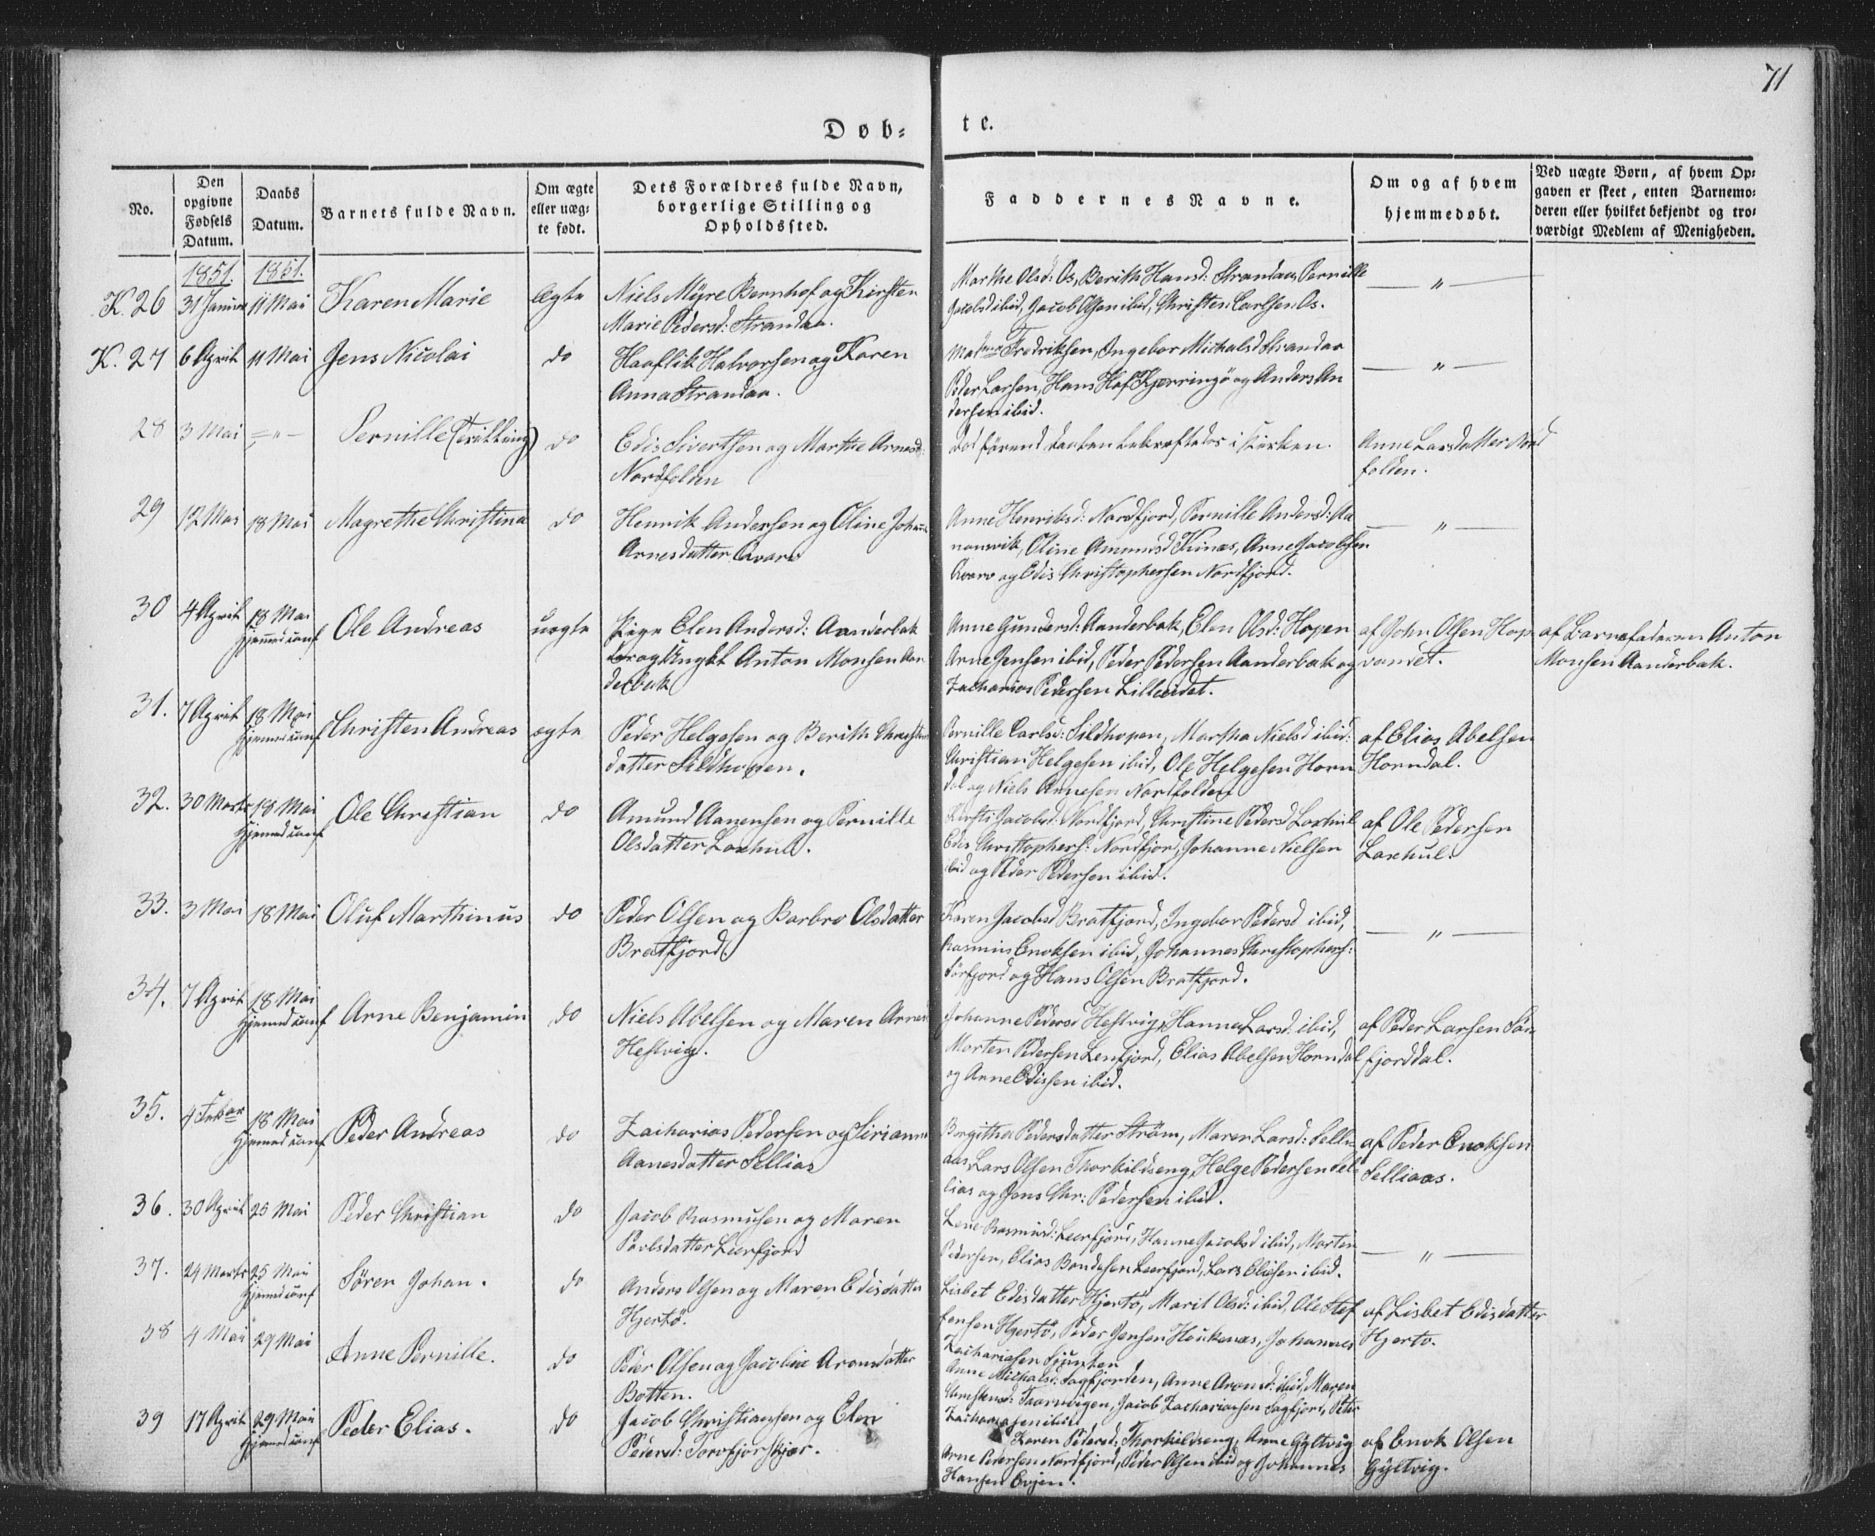 71
Døb-
te.
No.
Den opgivne Fødsels Datum.
Daabs Datum.
Barnets fulde Navn.
Om ægte eller uægte født.
Dets Forældres fulde Navn, borgerlige Stilling og Opholdssted.
Faddernes Navne.
Om og af hvem hjemmedøbt.
Ved uægte Børn, af hvem Opgaven er skeet, enten Barnemoderen eller hvilket bekjendt og troværdigt Medlem af Menigheden.
1851. 1851.
K. 26 31 Januar 11 Mai Karen Marie Ægte Niels Myre Bernhof og Kirsten
Marie Pedersd: Strandaa.
Marthe Olsd: Os, Berith Hansd: Strandaa, Pernille
Jacobsd ibid, Jacob Olsen ibid, Christen Carlsen Os.
— " —
K. 27 6 April 11 Mai Jens Nicolai do Haaflik Halvorsen og Karen
Anna Strandaa.
Fredriksen, Ingebor Michalsd Strandaa
Peder Larsen, Hans Hof Kjerringø og Anders An
dersen ibid.
— " —
28 3 Mai — " — Pernille (Tvilling) do Edis Sivertsen og Marthe Arnesd:
Nordfolden
død førend daaben bekræftedes i Kirken.
Anne Larsdatter Nord
folden.
29 12 Mai 18 Mai Magrethe Christina do Henrik Andersen og Oline Johan
Arnesdatter Qvarv
Anne Henriksd: Nordfjord, Pernille Andersd:
Oline Amundsd Kines, Arne Jacobsen
Qvarv og Edis Christophersen Nordfjord.
— " —
30 4 April 18 Mai Hjemmed conf Ole Andreas uægte Pige Elen Andersd: Aanderbak
og Ungkl Anton Monsen Aan
derbak
Anne Gundersd: Aanderbak, Elen Olsd: Hopen
Arne Jensen ibid, Peder Pedersen Aanderbak og
Zacharias Pedersen Lilleeidet.
af John Olsen Hop
vandet.
af Barnefaderen Anton
Monsen Aanderbak.
31. 7 April 18 Mai Hjemmed conf Christen Andreas ægte Peder Helgesen og Berith Christens
datter Sildhopen.
Pernille Carlsd: Sildhopen, Martha Nielsd ibid:
Christian Helgesen ibid, Ole Helgesen Horn
dal og Niels Arnesen Nordfolden
af Elias Abelsen
Horndal.
32. 30 Marts 18 Mai Hjemmed conf Ole Christian do Amund Aanensen og Pernille
Olsdatter Laxhul.
Kirsti Jacobsd: Nordfjord, Christine Pedersd Laxhul
Edis Christophers: Nordfjord, Johanne Nielsen
ibid og Peder Pedersen ibid.
af Ole Pedersen
Laxhul.
33. 3 Mai 18 Mai Oluf Marthinus do Peder Olsen og Barbro Olsdatter
Bratfjord.
Karen Jacobsd Bratfjord, Ingebor Pedersd ibid,
Rasmus Enoksen ibid, Johannes Christophers:
Sørfjord og Hans Olsen Bratfjord.
— " —
34. 7 April 18 Mai Hjemmed conf Arne Benjamin do Niels Abelsen og Maren Arnes
Hestvig.
Johanne Pedersd Hestvig, Hanne Larsd: ibid,
Morten Pedersen Leerfjord, Elias Abelsen Horndal
og Arne Edissen ibid.
af Peder Larsen Sør
fjorddal.
35. 4 Febar 18 Mai Hjemmed conf Peder Andreas do Zacharias Pedersen og Sirianna
Aanesdatter Selliaas
Birgitha Pedersdatter Strøm, Maren Larsd: Selli
aas, Lars Olsen Thorkildseng, Helge Pedersen Sel
liaas og Jens Chr: Pedersen ibid.
af Peder Enoksen
Selliaas.
36. 30 April 25 Mai Peder Christian do Jacob Rasmusen og Maren
Povlsdatter Leerfjord
Lene Rasmusd: Leerfjord, Hanne Jacobsd ibid, Morten
Pedersen, Elias Bondesen Leerfjord, Lars Eliasen ibid.
— " —
37. 24 Marts 25 Mai Hjemmed conf Søren Johan. do Anders Olsen og Maren Edisdatter
Hjertø.
Lisbet Edisdatter Hjertø, Marit Olsd: ibid, Ole Stef
fensen Hjertø, Peder Jensen Houkenæs, Johannes
Zachariasen
af Lisbet Edisdatter
Hjertø.
38 4 Mai 29 Mai Anne Pernille. do Peder Olsen og Jacobine Aronsdatter
Botten.
Anne Michalsd: Sagfjorden, Anne Aronsd: ibid, Maren
Christensd: Taarnvigen, Jacob Zachariasen Sagfjord, Peter
Zachariasen ibid
39 17 April 29 Mai Hjemmed conf Peder Elias. do Jacob Christiansen og Elen
Pedersd: Torvfjorskjær.
Karen Pedersd: Thorkildseng, Anne Gyltvig
Arne Pedersen Nordfjord, Peder Olsen ibid og Johannes
Hansen Evjen.
af Enok Olsen
Gyltvig.